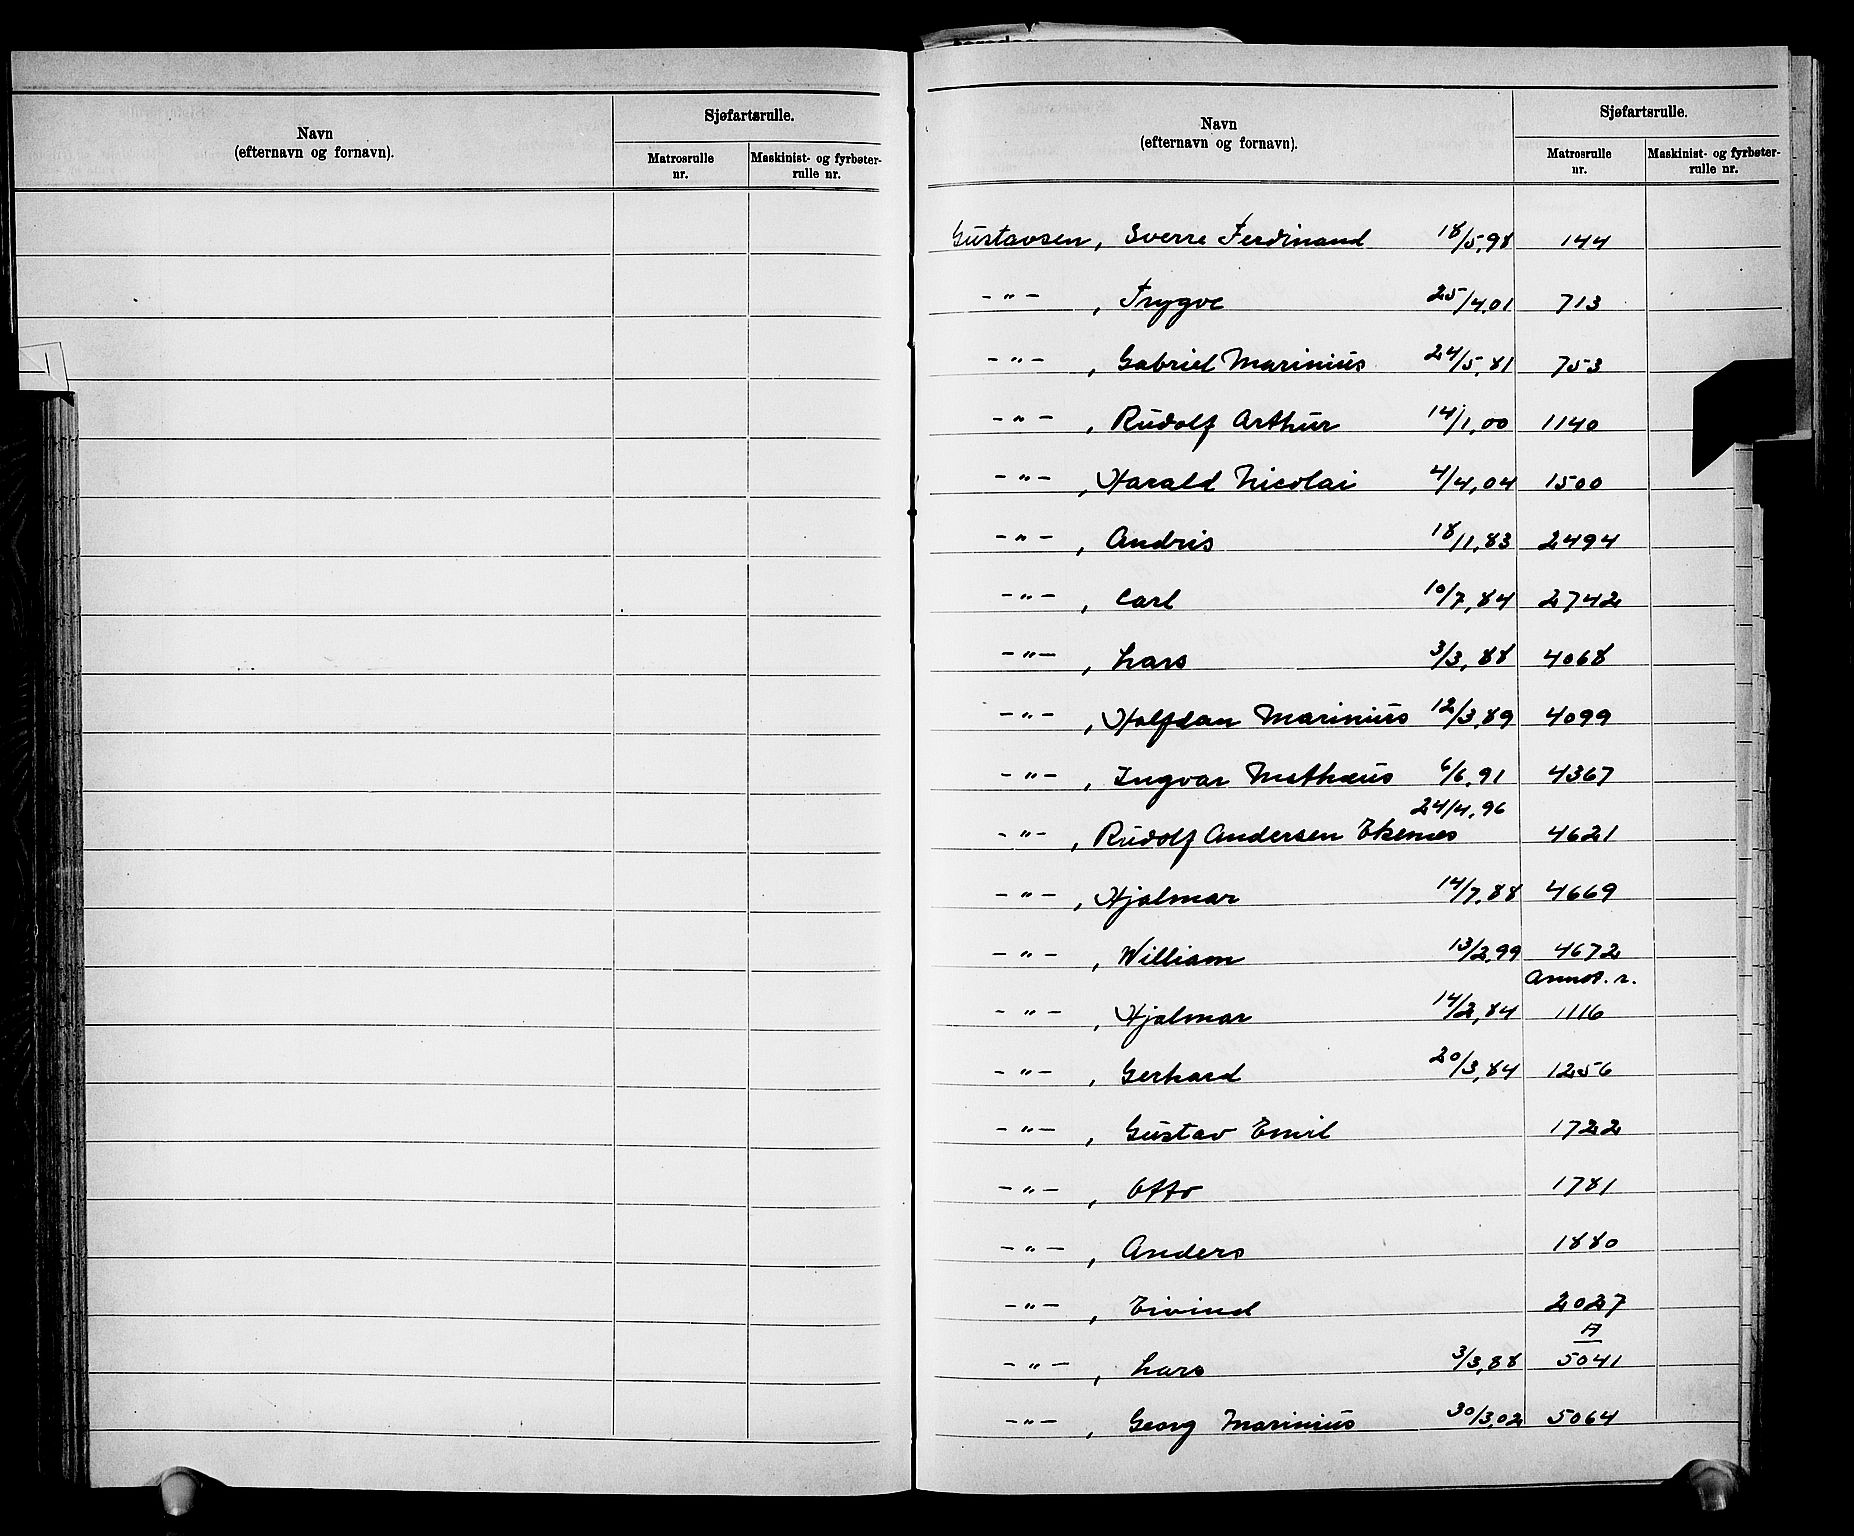 Navn
(efternavn og fornavn).
Sjøfartsrulle.
Matrosrulle nr.
Maskinist- og fyrbøter-rulle nr.
Navn
(efternavn og fornavn).
Sjøfartsrulle.
Matrosrulle nr.
Maskinist- og fyrbøter-rulle nr.
Gustavsen, Sverre Ferdinand 18/5,98 144
-"- , Trygve 25/4,01 713
-"- , Gabriel Marinius 24/5,81 753
-"- , Rudolf Arthur 14/1,00 1140
-"- , Harald Nicolai 4/4,04 1500
-"- , Andris 18/11,83 2494
-"- , Carl 10/7,84 2742
-"- , Lars 3/3,88 4068
-"- , Halfdan Marinius 12/3,89 4099
-"- , Ingvar Mathæus 6/6,91 4367
24/4,96
-"- , Rudolf Andersen Ekenes 4621
-"- , Hjalmar 14/7,88 4669
-"- , William 13/2,99 4672
Annot. r.
-"- , Hjalmar 14/2,84 1116
-"- , Gerhard 20/3,84 1256
-"- , Gustav Emil 1722
-"- , Otto 1781
-"- , Anders 1880
-"- , Eivind 2027
A
-"- , Lars 3/3,88 5041
-"- , Georg Marinius 30/3,02 5064